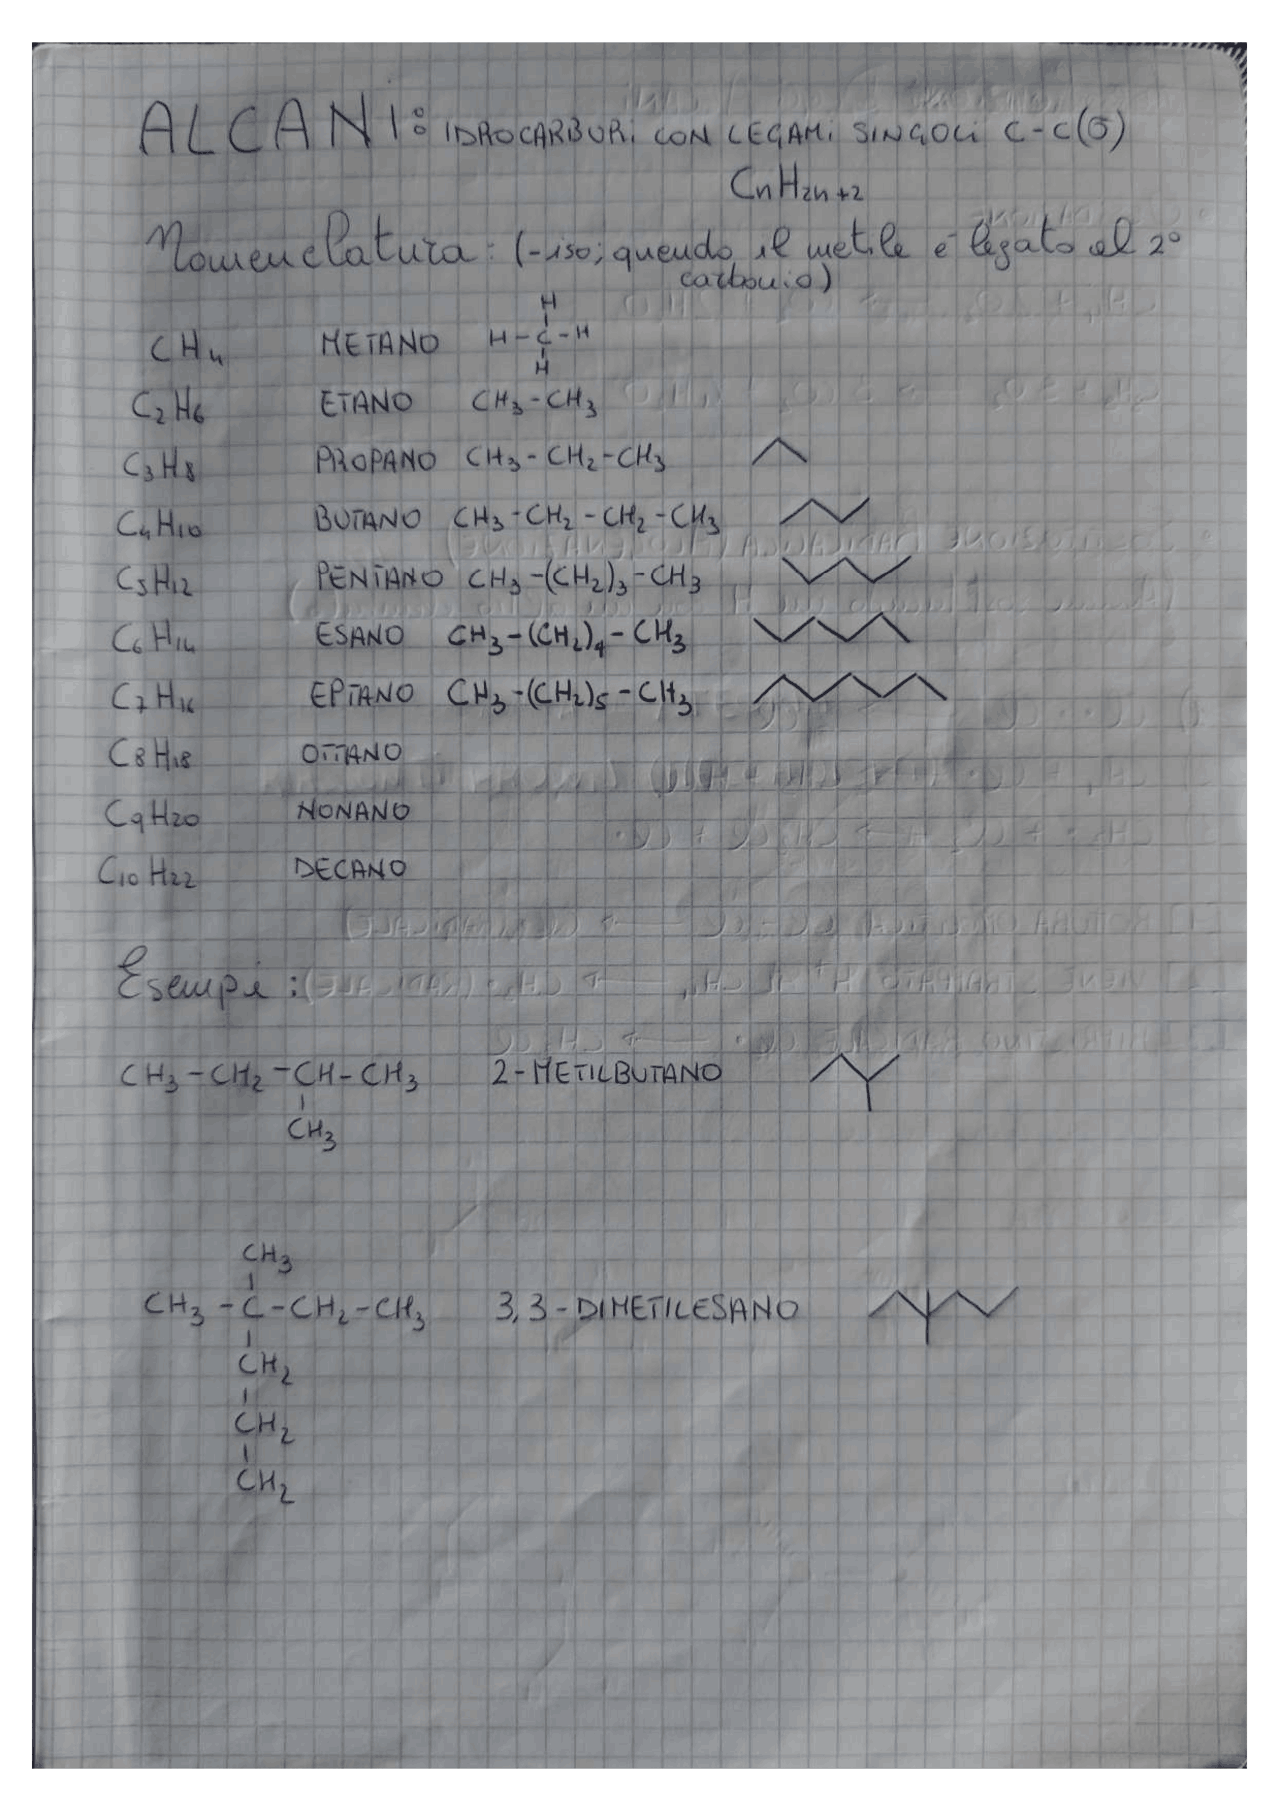 ALCANI: IDROCARBURI CON LEGAMI SINGOLI C-C(σ)
CnH2n+2
Nomenclatura: (-iso; quando il metile è legato al 2°
carbonio)
H
CH4 METANO H-C-H
H
C2H6 ETANO CH3-CH3
C3H8 PROPANO CH3-CH2-CH3
C4H10 BUTANO CH3-CH2-CH2-CH3
C5H12 PENTANO CH3-(CH2)3-CH3
C6H14 ESANO CH3-(CH2)4-CH3
C7H16 EPTANO CH3-(CH2)5-CH3
C8H18 OTTANO
C9H20 NONANO
C10H22 DECANO
Esempi:
CH3-CH2-CH-CH3 2-METILBUTANO
CH3
CH3
CH3-C-CH2-CH3 3,3-DIMETILESANO
CH2
CH2
CH2